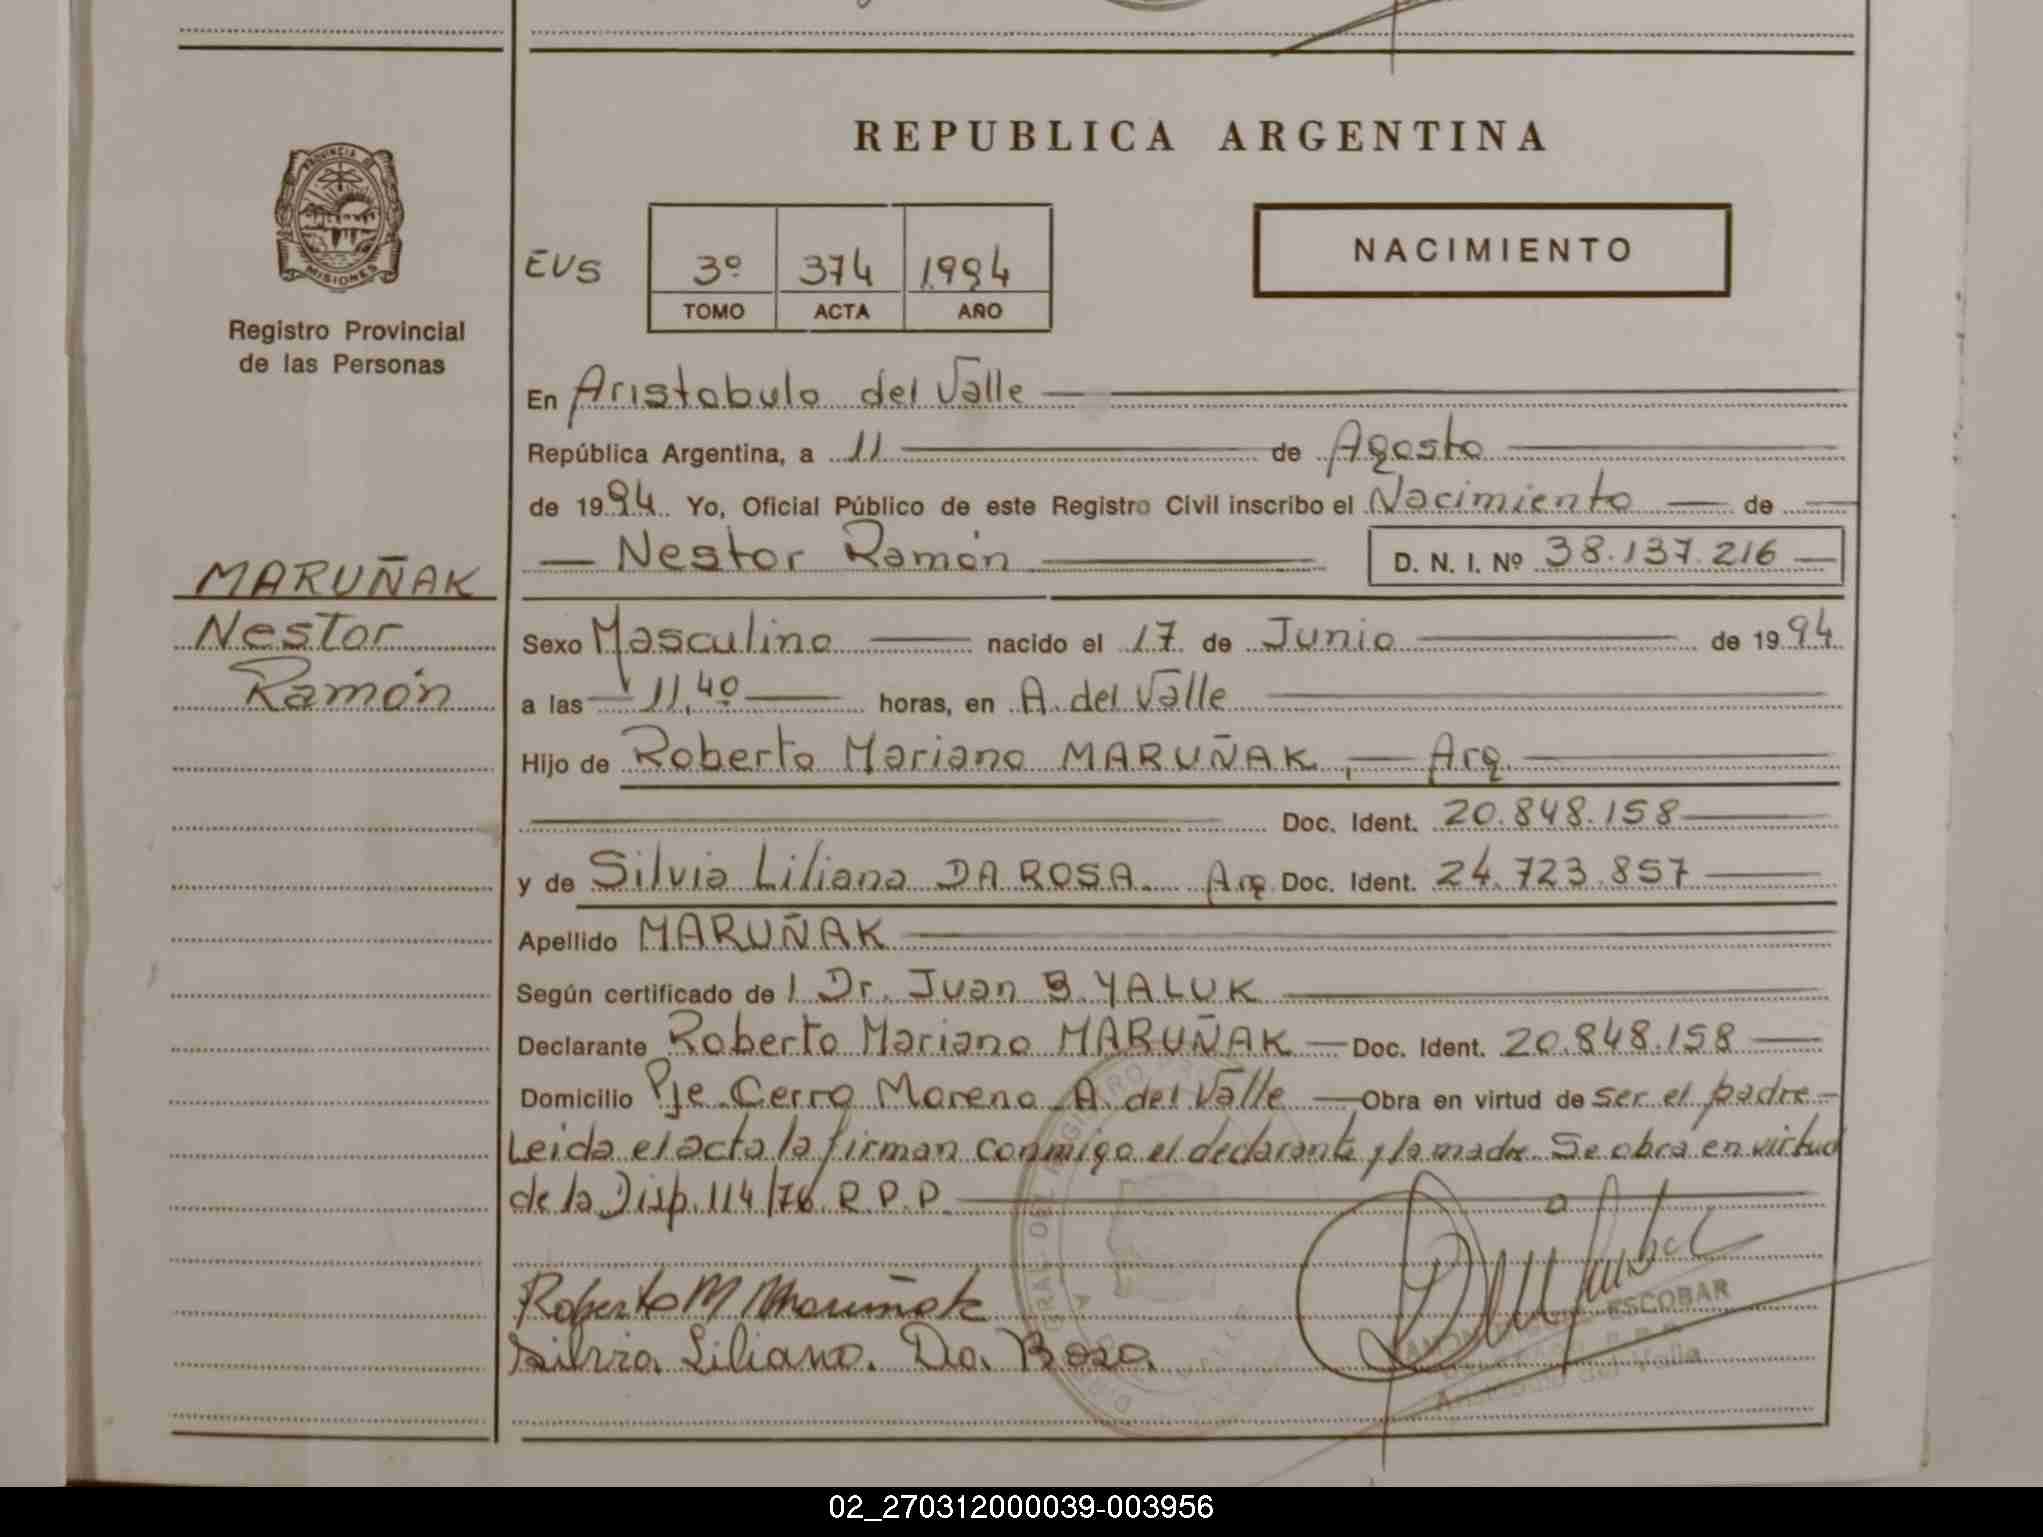 REPUBLICA ARGENTINA
PROVINCIA DE
MISIONES
Registro Provincial
de las Personas
EVS
3º 374 1994
TOMO ACTA AÑO
NACIMIENTO
En Aristobulo del Valle
República Argentina, a 11 de Agosto
de 1994 Yo, Oficial Público de este Registro Civil inscribo el Nacimiento de
Nestor Ramón D. N. I. Nº 38.137.216
MARUÑAK
Nestor
Ramón
Sexo Masculino nacido el 17 de Junio de 1994
a las 11,40 horas, en A. del Valle
Hijo de Roberto Mariano MARUÑAK, Arq.
Doc. Ident. 20.848.158
y de Silvia Liliana DA ROSA. Arq Doc. Ident. 24.723.857
Apellido MARUÑAK
Según certificado de l Dr. Juan B YALUK
Declarante Roberto Mariano MARUÑAK Doc. Ident. 20.848.158
Domicilio Pje Cerro Moreno A. del Valle Obra en virtud de ser el padre
Leida el acta la firman conmigo el declarante y la madre. Se obra en virtud
de la Disp. 114/76 R.P.P.
Roberto M Maruñak
Silvia Liliana. Da Rosa
ESCOBAR
del Valle
02_270312000039-003956